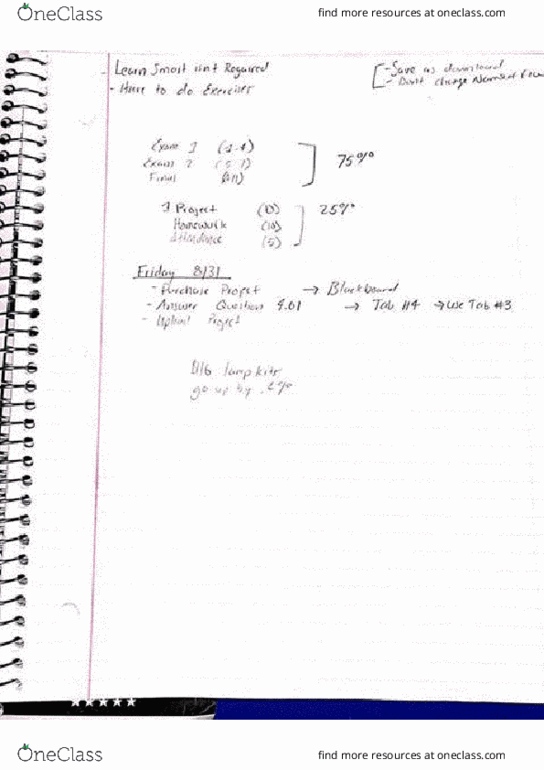 OneClass find more resources at oneclass.com
Learn Smart isn't Required
- Have to do Exercises
- Save as download
- Don't change
Exam 1 (1-4)
Exam 2 (5-7)
Final
75%
3 Project (10)
Homework (10)
Attendance (5)
25%
Friday 8/31
- Purchase Project → Blackboard
- Answer Question 9.61 → Tab #4 → Use Tab #3
- Upload Project
lamp kits
go up by
OneClass find more resources at oneclass.com